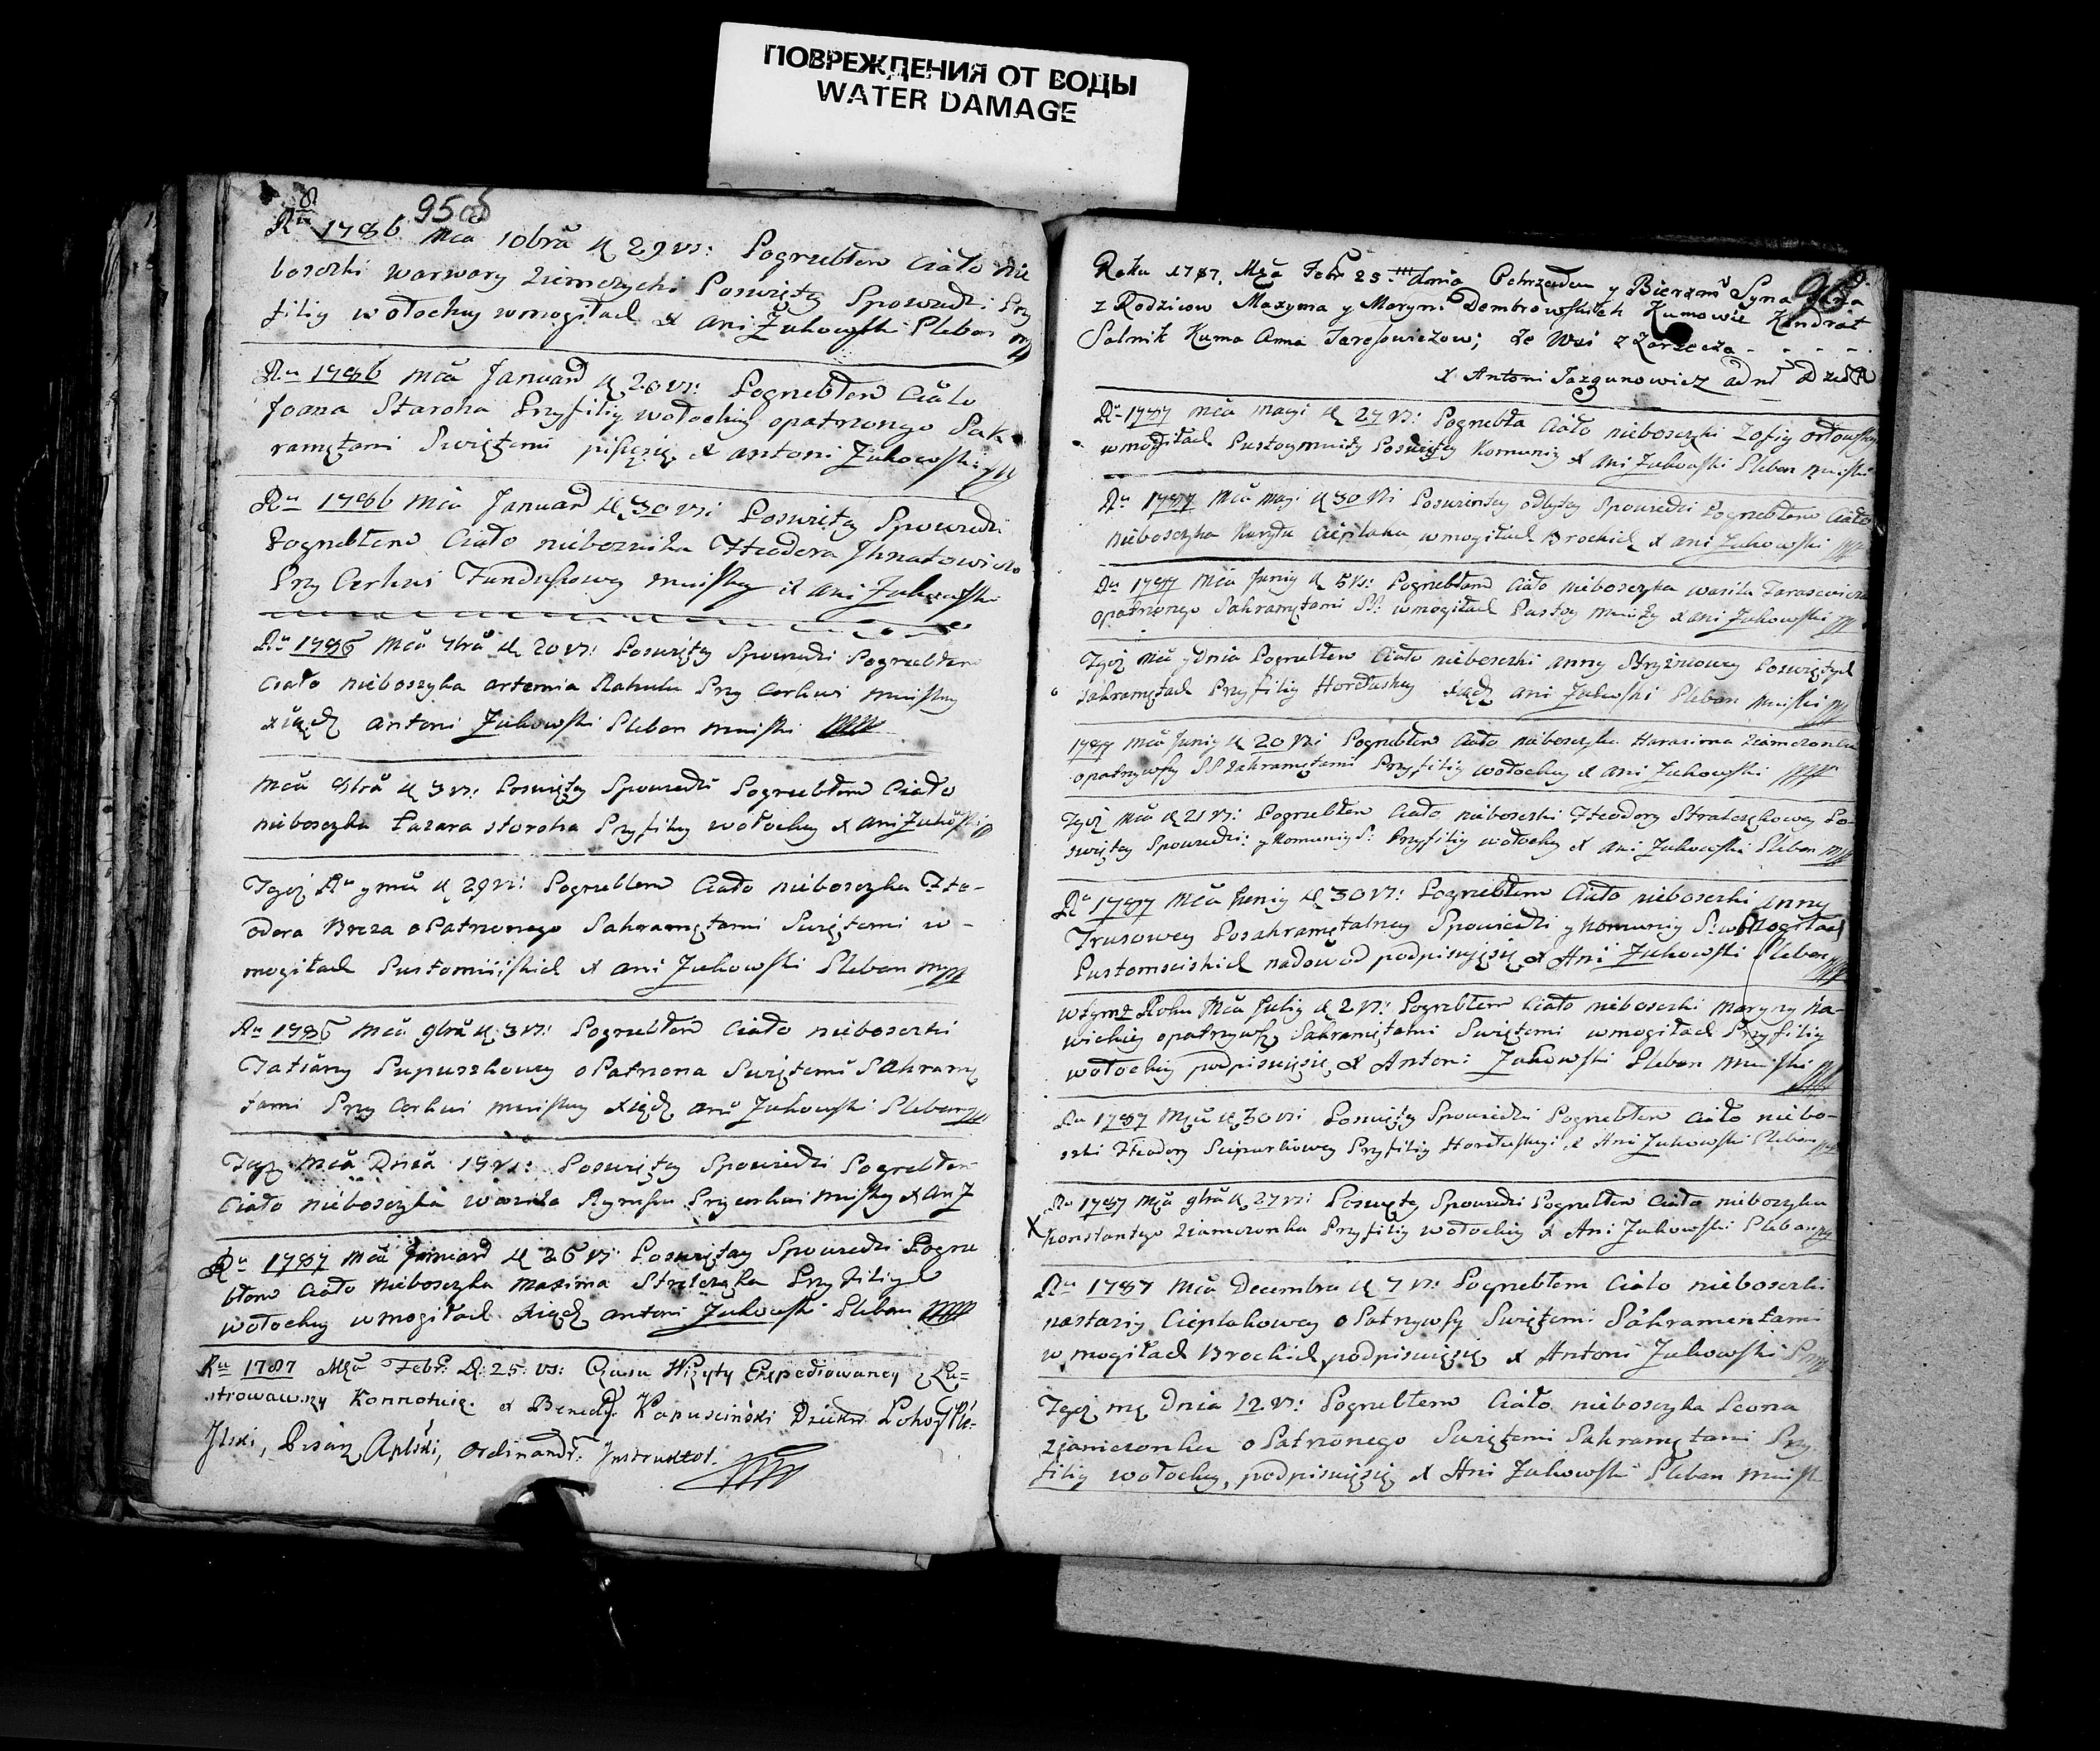 ПОВРЕЖДЕНИЯ ОТ ВОДЫ
WATER DAMAGE
8
95об
Ru 1786 Mca 10bra d 29 vs: Pogrzebłem Ciało nie
boszki warwary Ziemczychi Poswięty Spowiedzi Przy
filiy wołochy wmogiłach X Ani Żukowski Pleban
Ru 1786 mca Januard d 20 vs: Pogrzebłem Ciało
Joana Staroha Przyfiliy wołochiy opatrzonego Sak
ramętami Swiętemi X antoni Żukowski
Ru 1786 Mca Januard d 30 vs: Poswięty Spowiedzi
Pogrzebłem Ciało nieboszika Hteodora Jhnatowicza
Przy Cerkwi Funduszowey mniskey X ani Żukowski
Ru 1786 Mca 7bra d 20 vs: Poswięty Spowiedzi Pogrzebłem
Ciało nieboszyka artemia Rahula Przy Cerkwi mniskey
Xiądz antoni Żukowski Pleban mniski
Mca 8bra d 3 vs: Poswięty Spowiedzi Pogrzebłem Ciało
nieboszyka Łazara storoha Przyfiliy wołochy X Ani Żukowski
Tegoż Ru y mca d 29 vs: Pogrzebłem Ciało nieboszyka Hteo-
dora Breza oPatrzonego Sakramętami Swiętemi w-
mogiłach Pustomściskich X ani Żukowski Pleban
Ru 1786 Mca 9bra d 3 vs: Pogrzebłem Ciało nieboszki
Tatiany Pupuszkowey oPatrzona Swiętemi Sakramę
tami Przy Cerkwi mniskey Xiądz ani Żukowski Pleban
Tegoż Mca Dnia 19 vs: Poswięty Spowiedzi Pogrzebłem
Ciało nieboszyka wasila Przy cerkwi mniskey X An Ż
Ru 1787 Mca Januard d 26 vs: Poswiętey Spowiedzi Pogrze
błem Ciało nieboszyka maxima Strelczyka Przy filiy
wołochey wmogiłach Xiądz antoni Żukowski Pleban
Ru 1787 Mca Febr. D: 25. vs: Czasu Wizyty Expediowaney z Lu-
strowawszy Konnotuię. X Bened. Kapuscinski Dziekn.
Pisarz Aplski, Ordinand. Instruktor.
96
Roku 1787. Mca Febr 25 dnia Ochrzedzu y Bierzm Syna
z Rodzicow Maxyma y Maryni Dombrowskich Kumowie Kindrat
Salnik Kuma Anna Jaresowiczow; ze Wsi z Zarzecza
X Antoni Jazgunowicz
Ru 1787 mca mayi d 27 vs: Pogrzebła Ciało nieboszki Zofiy orłowskey
wmogiłach Pustoymnisky Poswiętey Komuniy X Ani Żukowski Pleban mniski
Ru 1787 Mca mayi d 30 vs: Poswiętey odbytey Spowiedzi Pogrzebłem Ciało
nieboszyka Kuryła Cieplaka wmogiłach Brockich X ani Żukowski
Ru 1787 Mca Juniy d 5 vs: Pogrzebłem Ciało nieboszyka wasila Tarasewicza
opatrzonego Sakramętami SS: wmogiłach Pustoy mnisky X ani Żukowski
Tegoż mca ydnia Pogrzebłem Ciało nieboszki anny Stryżniowey Poswiętych
Sakramętach Przyfiliy Hordłuskey Xiądz ani Żukowski Pleban mniski
1787 mca Juniy d 20 vs: Pogrzebłem Ciało nieboszyka Harasima Ziamczonka
opatrzywszy SS Sakramętami Przyfiliy wołochey X ani Żukowski
Tegoż Mca d 21 vs: Pogrzebłem Ciało nieboszki Hteodory Stralczykowey Po-
swiętey Spowiedzi: y Komuniy S: Przyfiliy wołochy X ani Żukowski Pleban
Ru 1787 Mca Juniy d 30 vs: Pogrzebłem Ciało nieboszki Anny
Trusowey Posakramętalney Spowiedzi y Komuniy S: wmogiłach
Pustomsciskich nadowod podpisuięsię X Ani Żukowski Pleban
wtymż Roku Mca Juliy d 2 vs: Pogrzebłem Ciało nieboszki maryny
wickiey opatrzywszy Sakramętami Swiętemi wmogiłach Przyfiliy
wołochiy podpisuięsię X Anton: Żukowski Pleban mniski
Ru 1787 Mca d 30 vs: Poswięty Spowiedzi Pogrzebłem Ciało niebo-
szki Hteodory Przyfiliy Hordłuskeyi X Ani Żukowski Pleban
X Ru 1787 Mca 9bra d 27 vs: Poswięty Spowiedzi Pogrzebłem Ciało nieboszyka
Konstantego Ziamczonka Przyfiliy wołochiy X Ani Żukowski Pleban
Ru 1787 Mca Decembra d 7 vs: Pogrzebłem Ciało nieboszki
nastaziy Cieplakowey oPatrzywszy Swiętemi Sakramentami
w mogiłach Brockich podpisuięsię X Antoni Żukowski
Tegoż mc Dnia 12 vs: Pogrzebłem Ciało nieboszyka Leona
ziamczonka oPatrzonego Swiętemi Sakramętami Przy
filiy wołochey, podpisuięsię X Ani Żukowski Pleban mnisk